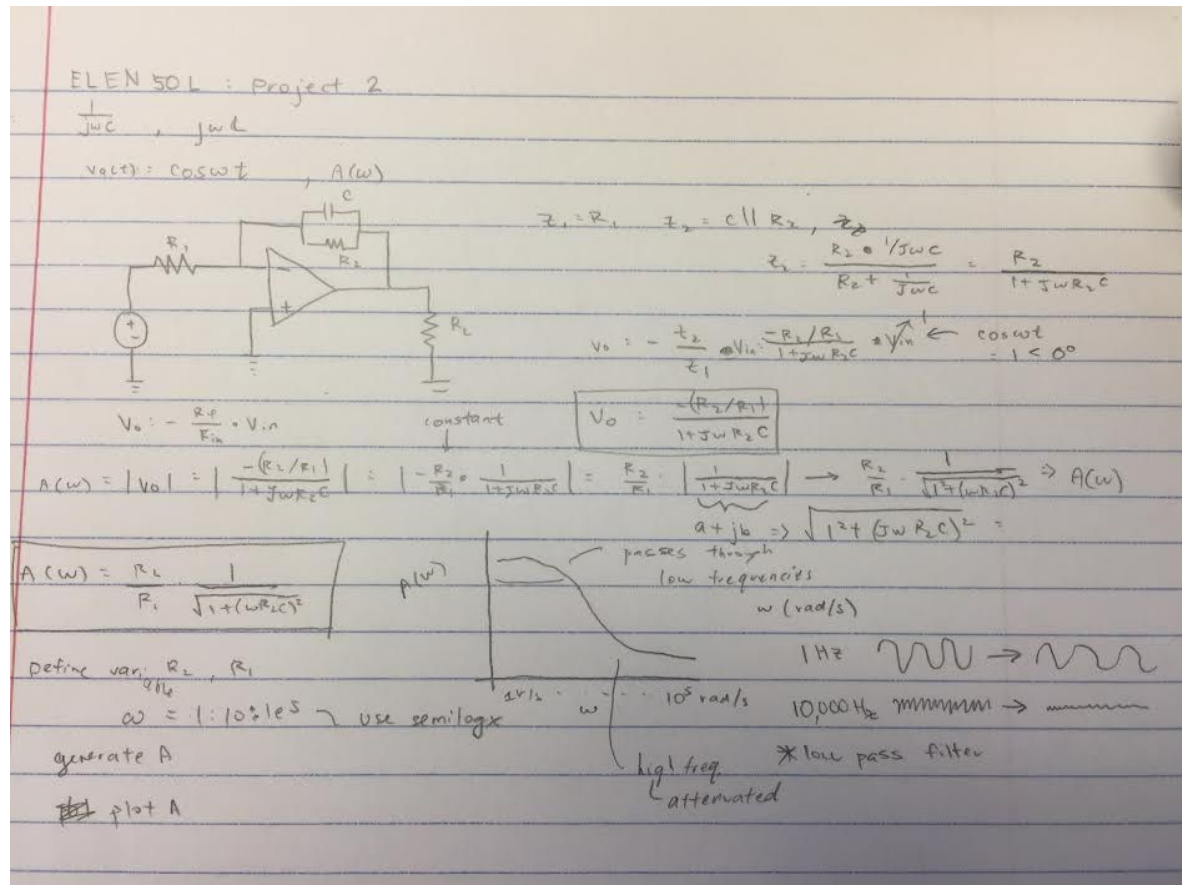 ELEN 50L : Project 2
1/jwC , jwL
vg(t) = cos ω t , A(ω)
C
R1
R2
- +
+ -
RL
Z1 = R1 Z2 = C || R2 ,
Z2 = (R2 • 1/JWC)/(R2 + 1/JWC) = R2/(1+JWR2C)
Vo = - Z2/Z1 • Vin = (-R2/R1)/(1+JWR2C) • Vin 1 ← cosωt
= 1 < 0°
Vo = - Rf/Rin • Vin
constant
Vo = -(R2/R1)/(1+JWR2C)
A(ω) = |Vo| = |-(R2/R1)/(1+JWR2C)| = |-R2/R1 • 1/(1+JWR2C)| = R2/R1 • |1/(1+JWR2C)| → R2/R1 • 1/√(1²+(ωR2C)²) => A(ω)
a+jb => √(1²+(JWR2C)²) =
A(ω) = R2/R1 1/√(1+(ωR2C)²)
A(W)
passes through
low frequencies
ω (rad/s)
1r/s - - - - - 10⁵ rad/s
ω
high freq.
attenuated
1 HZ →
10,000 Hz →
* low pass filter
Define variable R2 , R1
ω = 1:10:1e5 use semilogx
generate A
plot A